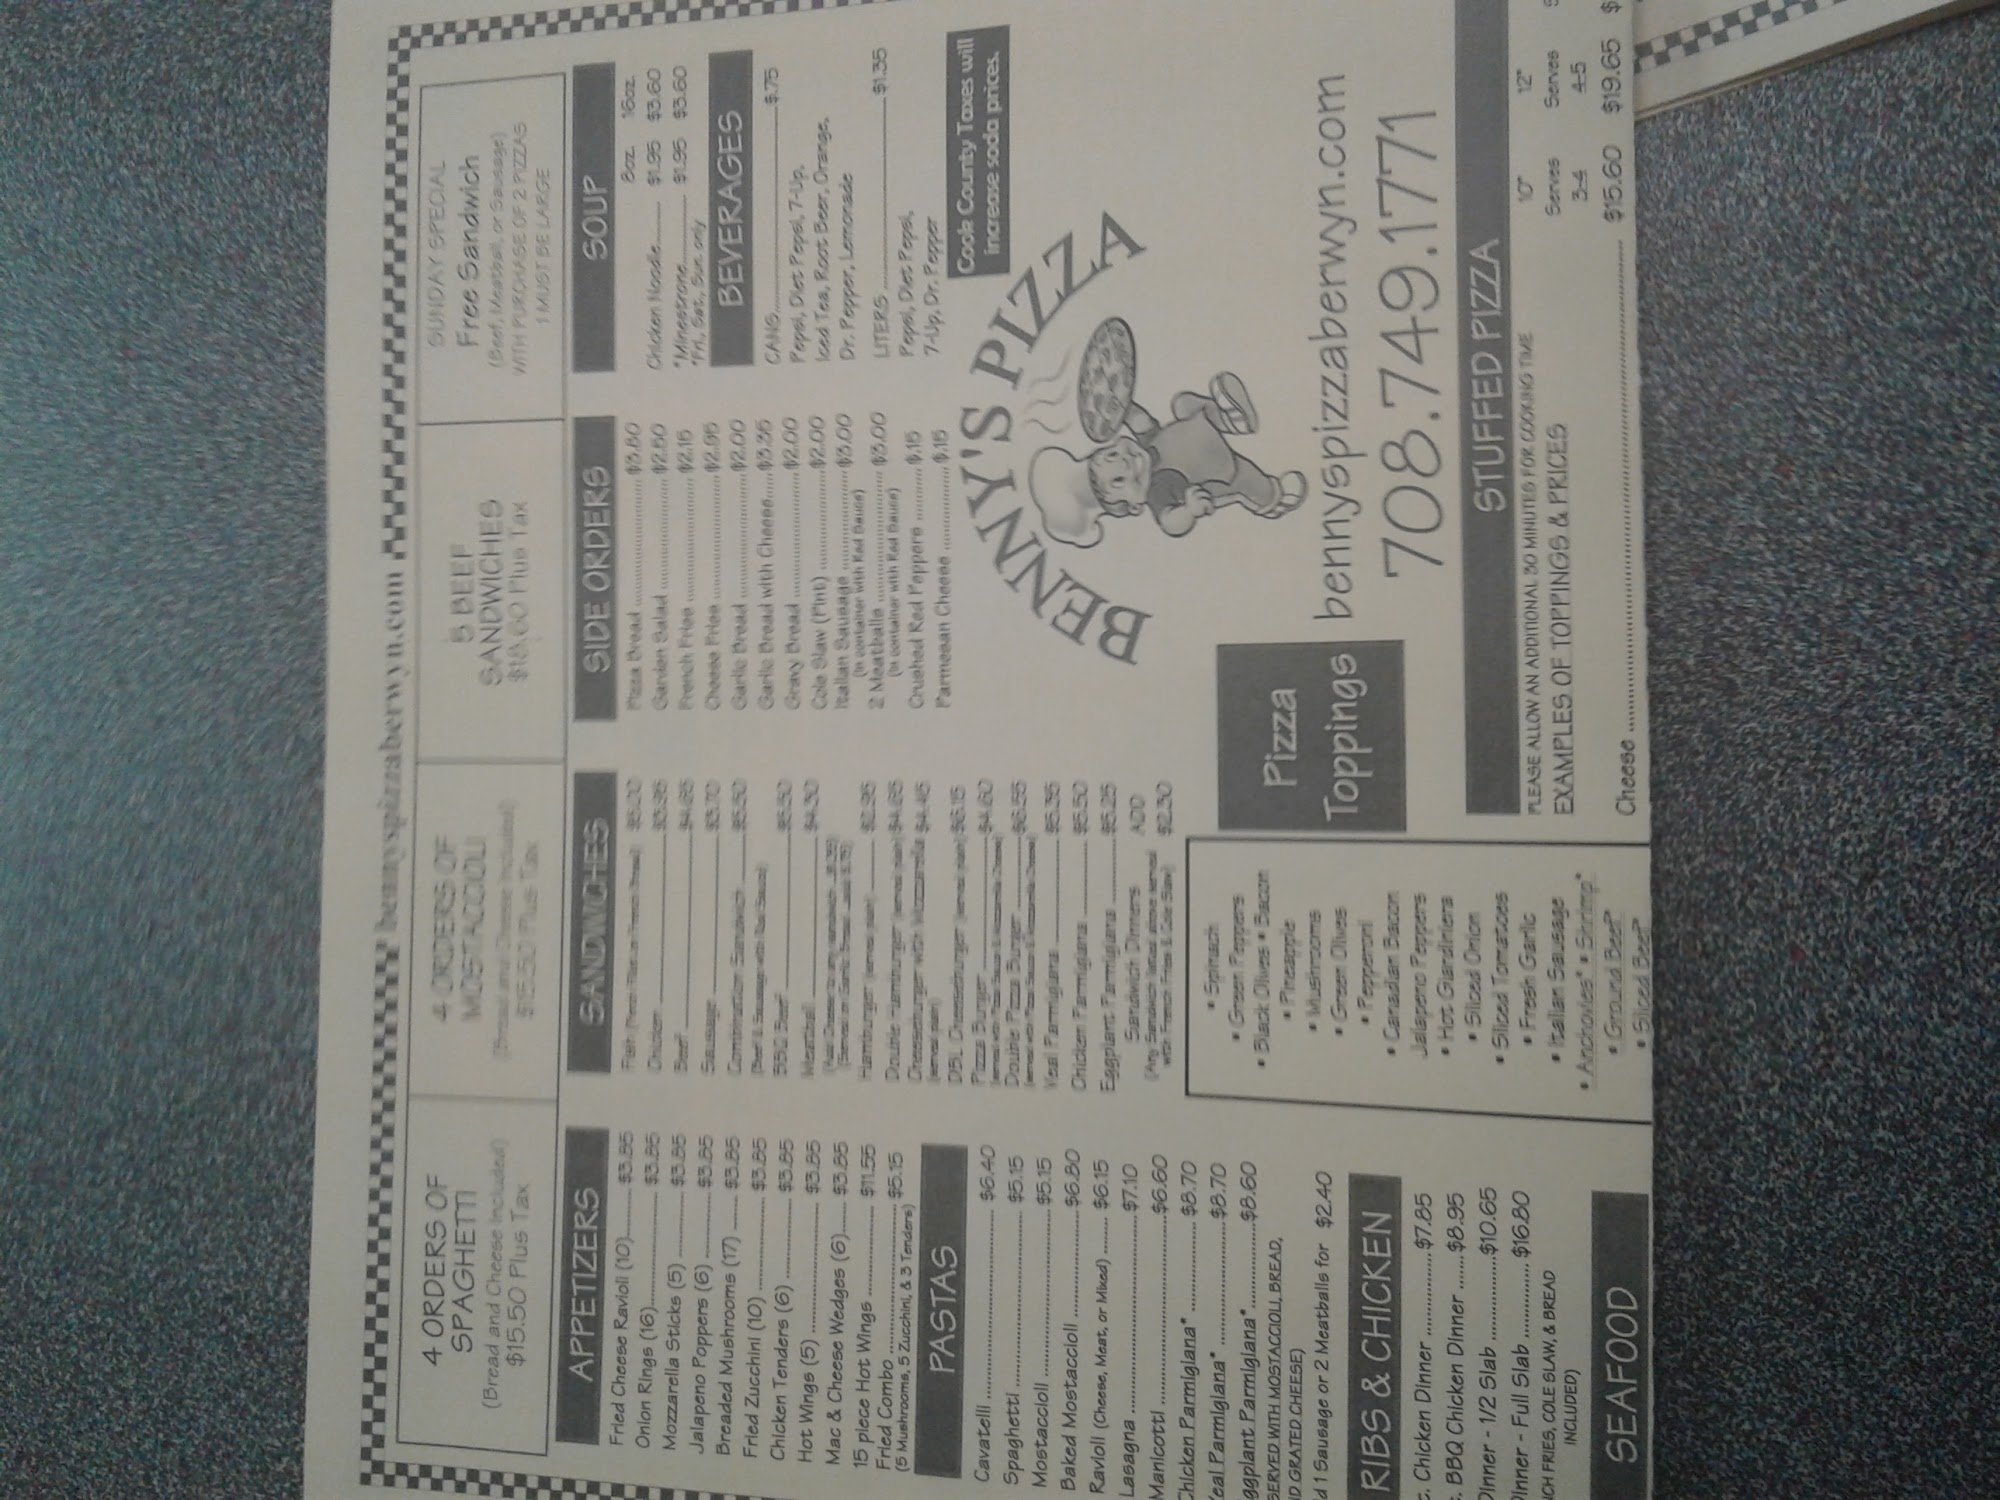 bennyspizzaberwyn.com
4 ORDERS OF
SPAGHETTI
(Bread and Cheese Included)
$15.50 Plus Tax
4 ORDERS OF
MOSTACCIOLI
(Bread and Cheese Included)
$15.50 Plus Tax
5 BEEF
SANDWICHES
Plus Tax
SUNDAY SPECIAL
Free Sandwich
(Beef, Meatball, or Sausage)
WITH PURCHASE OF 2 PIZZAS
1 MUST BE LARGE
APPETIZERS
Fried Cheese Ravioli (10) $3.85
Onion Rings (16) $3.85
Mozzarella Sticks (5) $3.85
Jalapeno Poppers (6) $3.85
Breaded Mushrooms (17) $3.85
Fried Zucchini (10) $3.85
Chicken Tenders (6) $3.85
Hot Wings (5) $3.85
Mac & Cheese Wedges (6) $3.85
15 piece Hot Wings $11.55
Fried Combo $5.15
(5 Mushrooms, 5 Zucchini, & 3 Tenders)
PASTAS
Cavatelli $6.40
Spaghetti $5.15
Mostaccioli $5.15
Baked Mostaccioli $6.80
Ravioli (Cheese, Meat, or Mixed) $6.15
Lasagna $7.10
Manicotti $6.60
Chicken Parmigiana* $8.70
Veal Parmigiana* $8.70
ggplant Parmigiana* $8.60
SERVED WITH MOSTACCIOLI, BREAD,
D GRATED CHEESE)
d 1 Sausage or 2 Meatballs for $2.40
RIBS & CHICKEN
. Chicken Dinner $7.85
. BBQ Chicken Dinner $8.95
Dinner - 1/2 Slab $10.65
Dinner - Full Slab $16.80
NCH FRIES, COLE SLAW, & BREAD
INCLUDED)
SEAFOOD
SANDWICHES
Fish
Chicken $3.95
Beef $4.65
Sausage $3.70
Combination Sandwich $5.50
(Beef & Sausage with Red Sauce)
BBQ Beef $5.50
Meatball $4.30
Hamburger (served plain) $2.95
Double Hamburger (served plain) $4.65
Cheeseburger with Mozzarella $4.45
(served plain)
DBL Cheeseburger (served plain) $6.15
Pizza Burger $4.60
Double Pizza Burger $6.55
Veal Parmigiana $5.35
Chicken Parmigiana $5.50
Eggplant Parmigiana $5.25
Sandwich Dinners ADD
(Any Sandwich listed above served
with French Fries & Cole Slaw) $2.30
• Spinach
• Green Peppers
• Black Olives • Bacon
• Pineapple
• Mushrooms
• Green Olives
• Pepperoni
• Canadian Bacon
Jalapeno Peppers
• Hot Giardiniera
• Sliced Onion
• Sliced Tomatoes
• Fresh Garlic
• Italian Sausage
• Anchovies* • Shrimp*
• Ground Beef*
• Sliced Beef*
Pizza
Toppings
SIDE ORDERS
Pizza Bread $3.80
Garden Salad $2.50
French Fries $2.15
Cheese Fries $2.95
Garlic Bread $2.00
Garlic Bread with Cheese $3.35
Gravy Bread $2.00
Cole Slaw (Pint) $2.00
Italian Sausage $3.00
(In container with Red Sauce)
2 Meatballs $3.00
(In container with Red Sauce)
Crushed Red Peppers $.15
Parmesan Cheese $.15
SOUP
8oz. 16oz.
Chicken Noodle $1.95 $3.60
*Minestrone $1.95 $3.60
*Fri., Sat., Sun. only
BEVERAGES
CANS $.75
Pepsi, Diet Pepsi, 7-Up,
Iced Tea, Root Beer, Orange,
Dr. Pepper, Lemonade
LITERS $1.35
Pepsi, Diet Pepsi,
7-Up, Dr. Pepper
Cook County Taxes will
increase soda prices.
BENNY'S PIZZA
bennyspizzaberwyn.com
708.749.1771
STUFFED PIZZA
PLEASE ALLOW AN ADDITIONAL 30 MINUTES FOR COOKING TIME
EXAMPLES OF TOPPINGS & PRICES
10" 12"
Serves Serves S
3-4 4-5
Cheese $15.60 $19.65 $